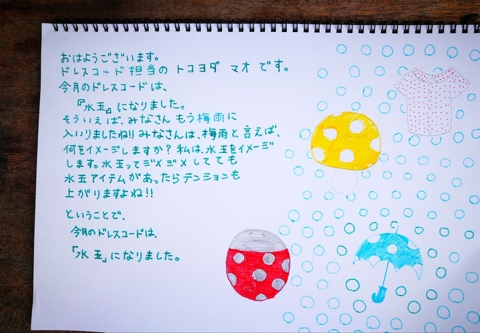 おはようございます。
ドレスコード担当の トコヨダ マオ です。
今月のドレスコードは、
『水玉』になりました。
そういえば、みなさん もう梅雨に
入りましたね!! みなさんは、梅雨と言えば、
何をイメージしますか? 私は、水玉をイメージ
します。水玉ってジメジメ してても
水玉アイテムがあったらテンションも
上がりますよね!!
ということで、
今月のドレスコードは、
「水玉」になりました。